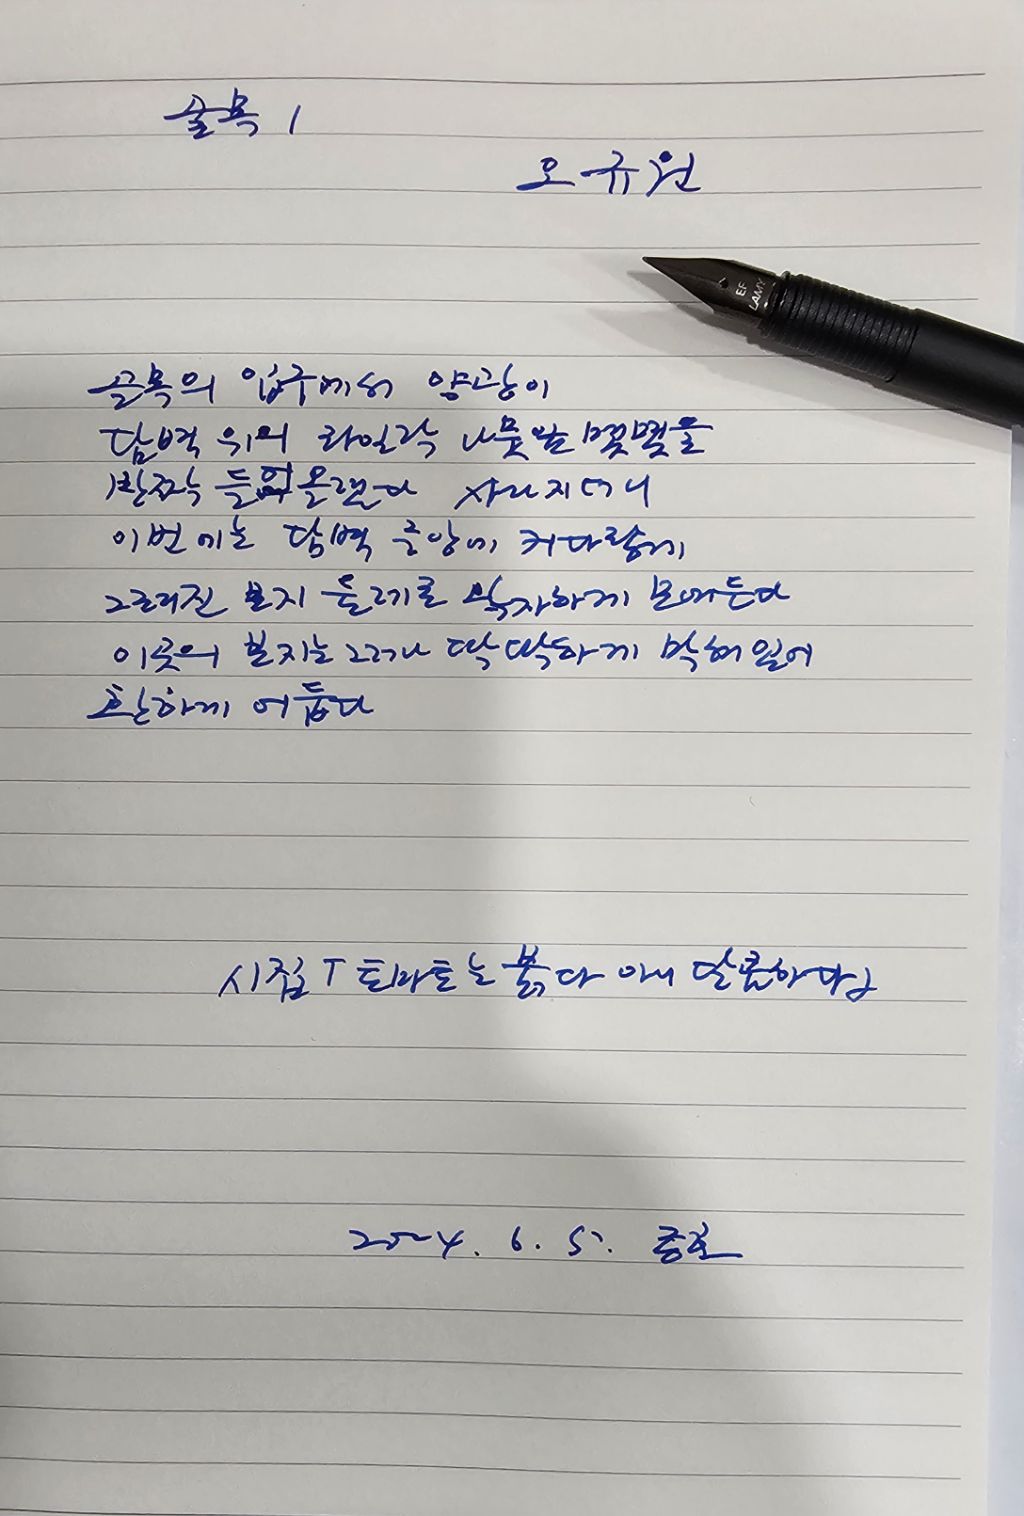 골목 1
오규원
EF
LAMY
골목의 입구에서 양광이
담벽 위의 라일락 나뭇잎 몇몇을
반짝 들어올렸다 사라지더니
이번에는 담벽 중앙에 커다랗게
그려진 보지 둘레로 왁자하게 모여든다
이곳의 보지는 그러나 딱딱하게 막혀 있어
환하게 어둡다
시집 『토마토는 붉다 아니 달콤하다』
2024. 6. 5.